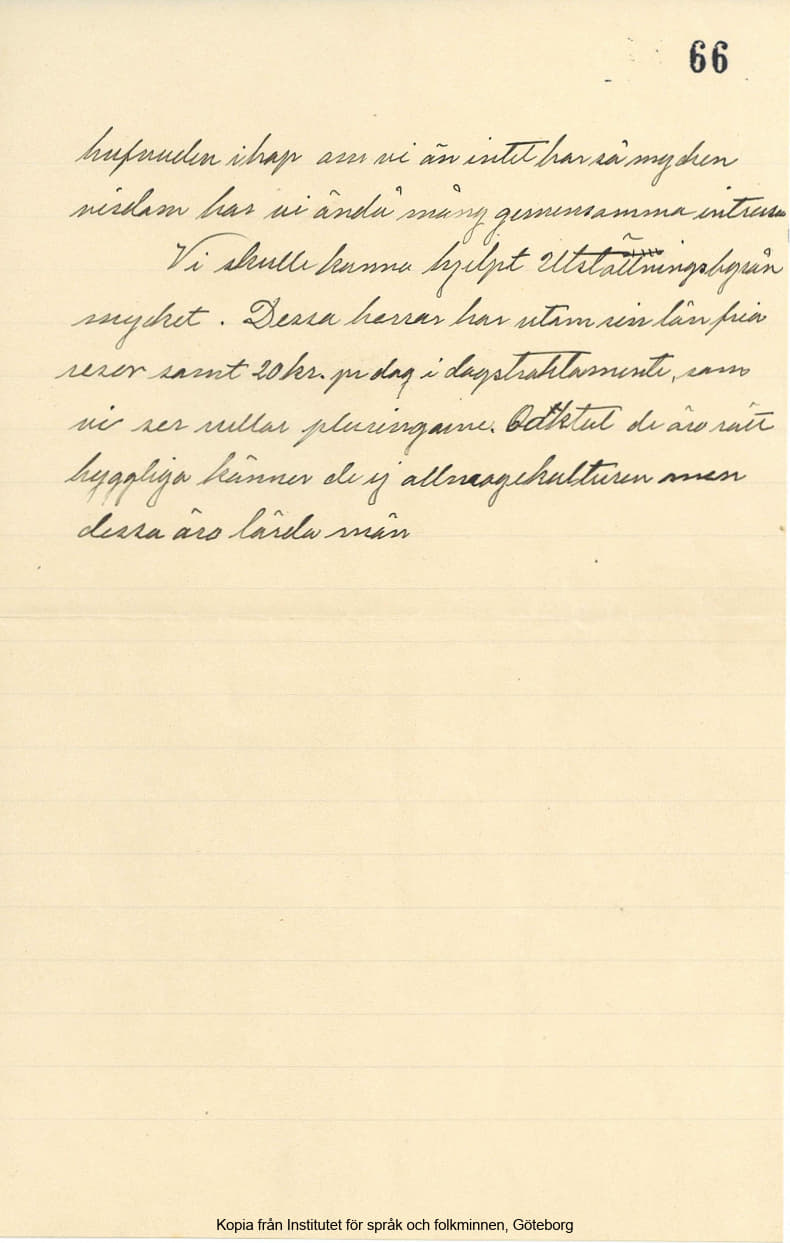 66
hufvuden ihop om vi än intet har så mycken
visdom har vi ändå mång gemensamma intressen
Vi skulle kunna hjelpt Utställningsbyrån
mycket. Dessa herrar har utom sin lön fria
resor samt 20 kr. pr dag i dagstraktamente, som
vi ser rullar pluringarne. de äro rätt
hyggliga känner de ej allmogekulturen men
dessa äro lärda män
Kopia från Institutet för språk och folkminnen, Göteborg